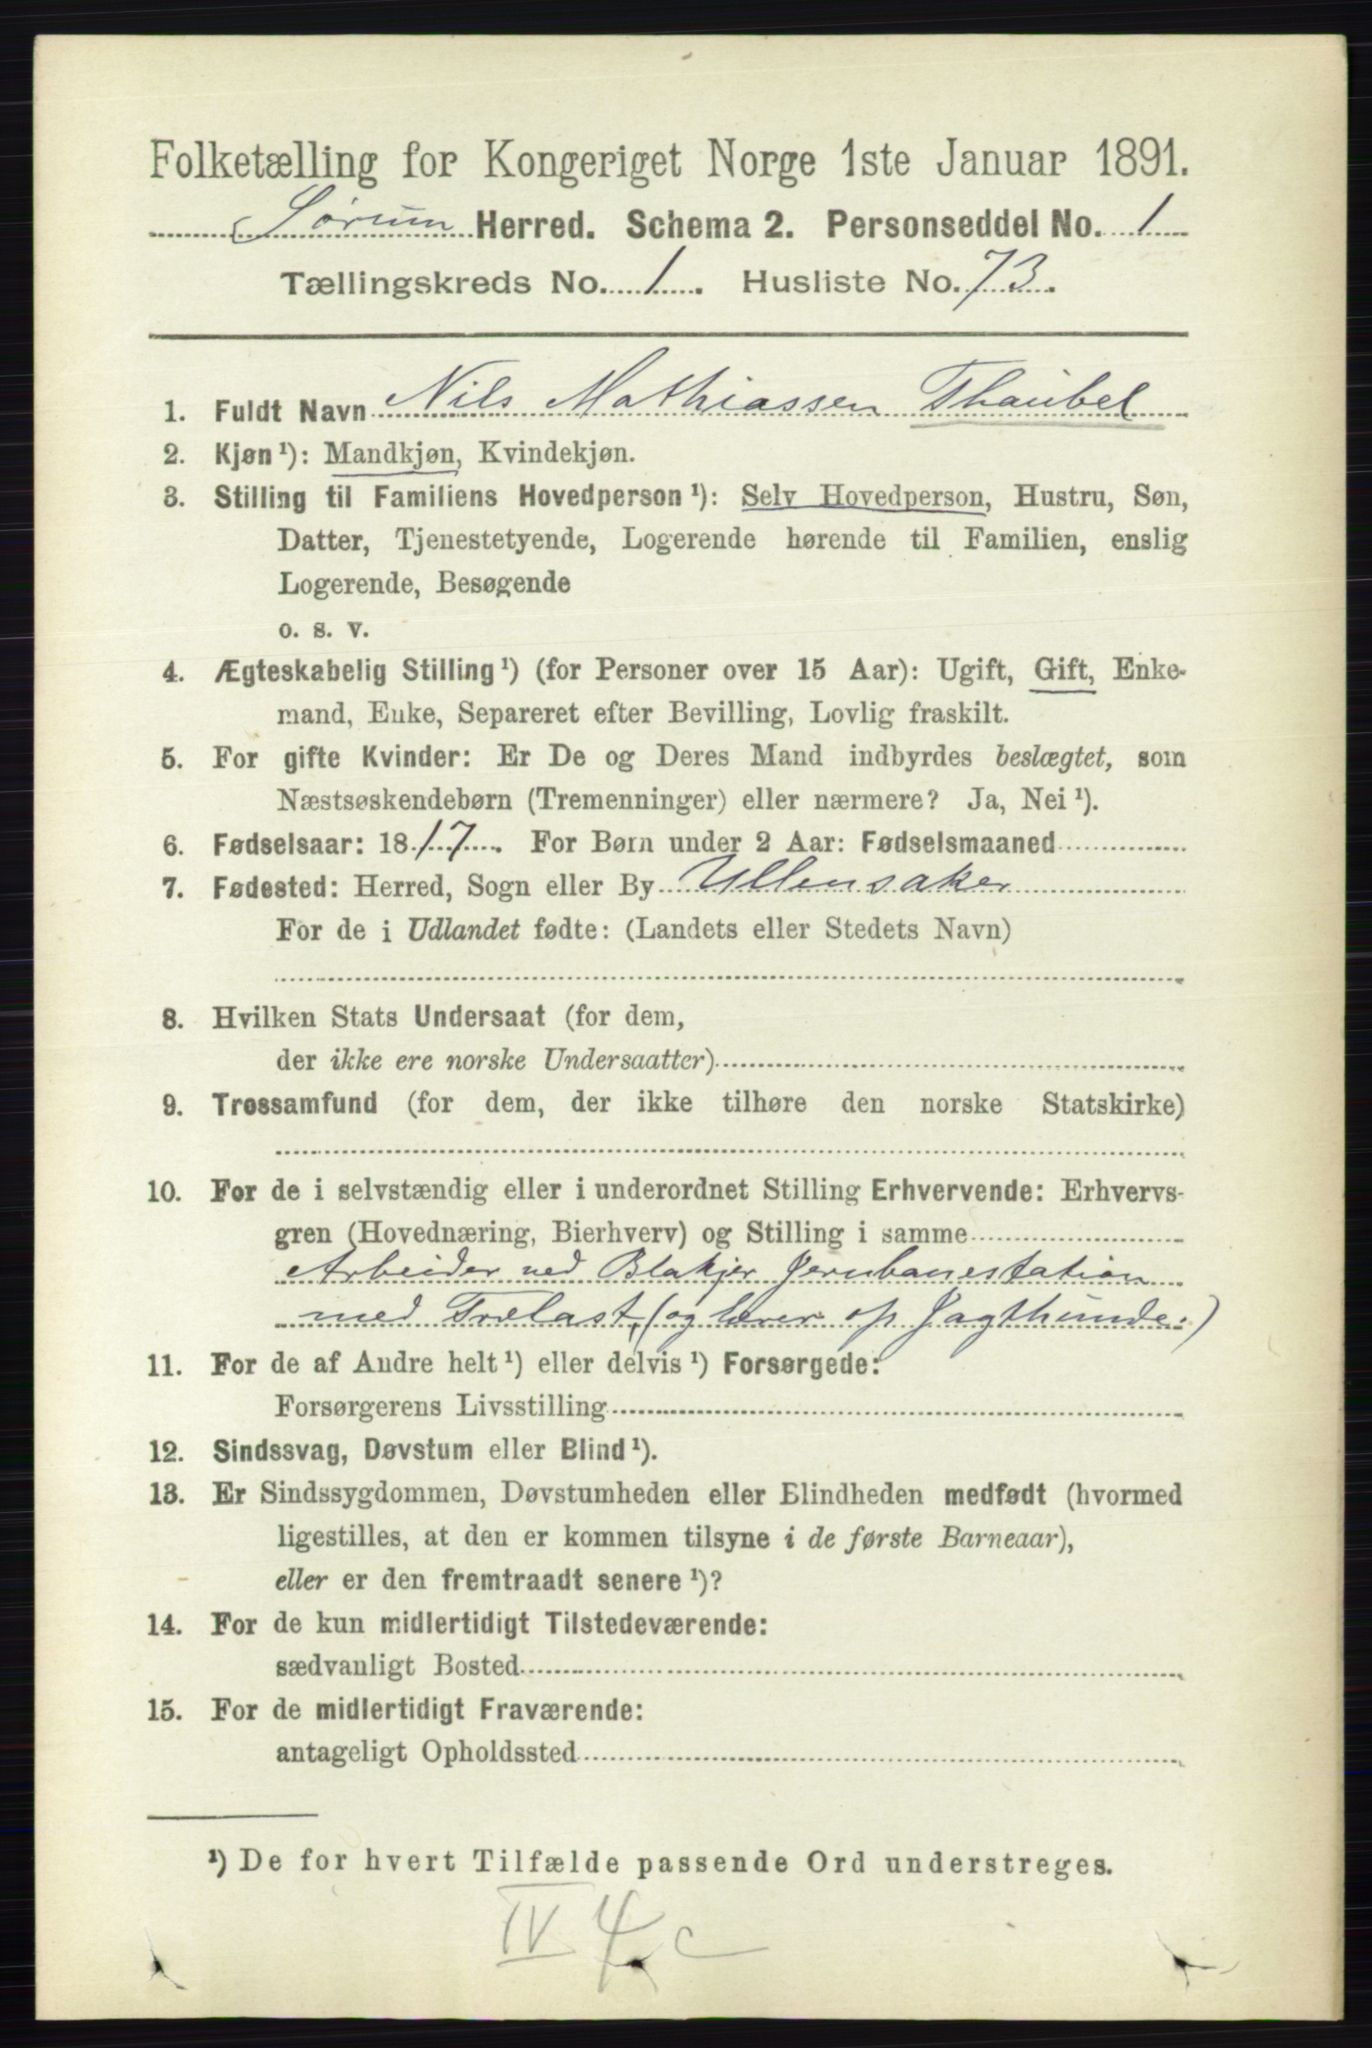 Folketælling for Kongeriget Norge 1ste Januar 1891.
Sørum Herred. Schema 2. Personseddel No. 1
Tællingskreds No. 1. Husliste No. 73.
1. Fuldt Navn Nils Mathiassen Thaubel
2. Kjøn ¹): Mandkjøn, Kvindekjøn.
3. Stilling til Familiens Hovedperson ¹): Selv Hovedperson, Hustru, Søn,
Datter, Tjenestetyende, Logerende hørende til Familien, enslig
Logerende, Besøgende
o. s. v.
4. Ægteskabelig Stilling ¹) (for Personer over 15 Aar): Ugift, Gift, Enke-
mand, Enke, Separeret efter Bevilling, Lovlig fraskilt.
5. For gifte Kvinder: Er De og Deres Mand indbyrdes beslægtet, som
Næstsøskendebørn (Tremenninger) eller nærmere? Ja, Nei ¹).
6. Fødselsaar: 1817. For Børn under 2 Aar: Fødselsmaaned
7. Fødested: Herred, Sogn eller By Ullensaker
For de i Udlandet fødte: (Landets eller Stedets Navn)
8. Hvilken Stats Undersaat (for dem,
der ikke ere norske Undersaatter)
9. Trossamfund (for dem, der ikke tilhøre den norske Statskirke)
10. For de i selvstændig eller i underordnet Stilling Erhvervende: Erhvervs-
gren (Hovednæring, Bierhverv) og Stilling i samme
Arbeider ved Blakjer Jernbanestation
med Trælast, (og lærer op Jagthunde.)
11. For de af Andre helt ¹) eller delvis ¹) Forsørgede:
Forsørgerens Livsstilling
12. Sindssvag, Døvstum eller Blind ¹).
13. Er Sindssygdommen, Døvstumheden eller Blindheden medfødt (hvormed
ligestilles, at den er kommen tilsyne i de første Barneaar),
eller er den fremtraadt senere ¹)?
14. For de kun midlertidigt Tilstedeværende:
sædvanligt Bosted
15. For de midlertidigt Fraværende:
antageligt Opholdssted
¹) De for hvert Tilfælde passende Ord understreges.
IV 4 c